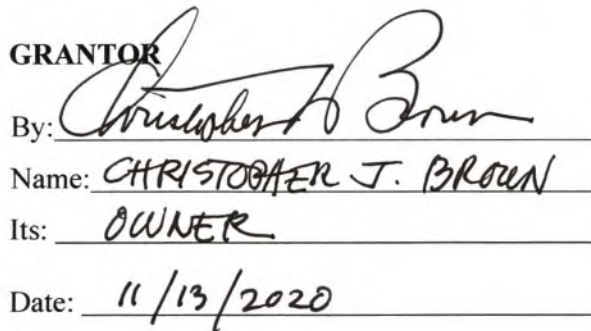 GRANTOR
By: Christopher J Brown
Name: CHRISTOPHER J. BROWN
Its: OWNER
Date: 11/13/2020